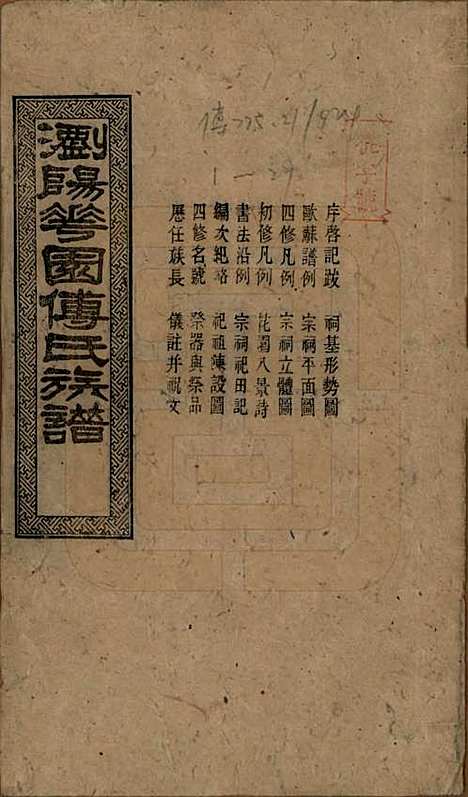 瀏陽花園傅氏族譜
序啓記跋　祠基形勢圖
歐蘇譜例　宗祠平面圖
四修凡例　宗祠立體圖
初修凡例　花園八景詩
書法沿例　宗祠祀田記
編次犯略　祀祖陳設圖
四修名號　祭器與祭品
歷任族長　儀註并祝文
傅775.21/924
1-29